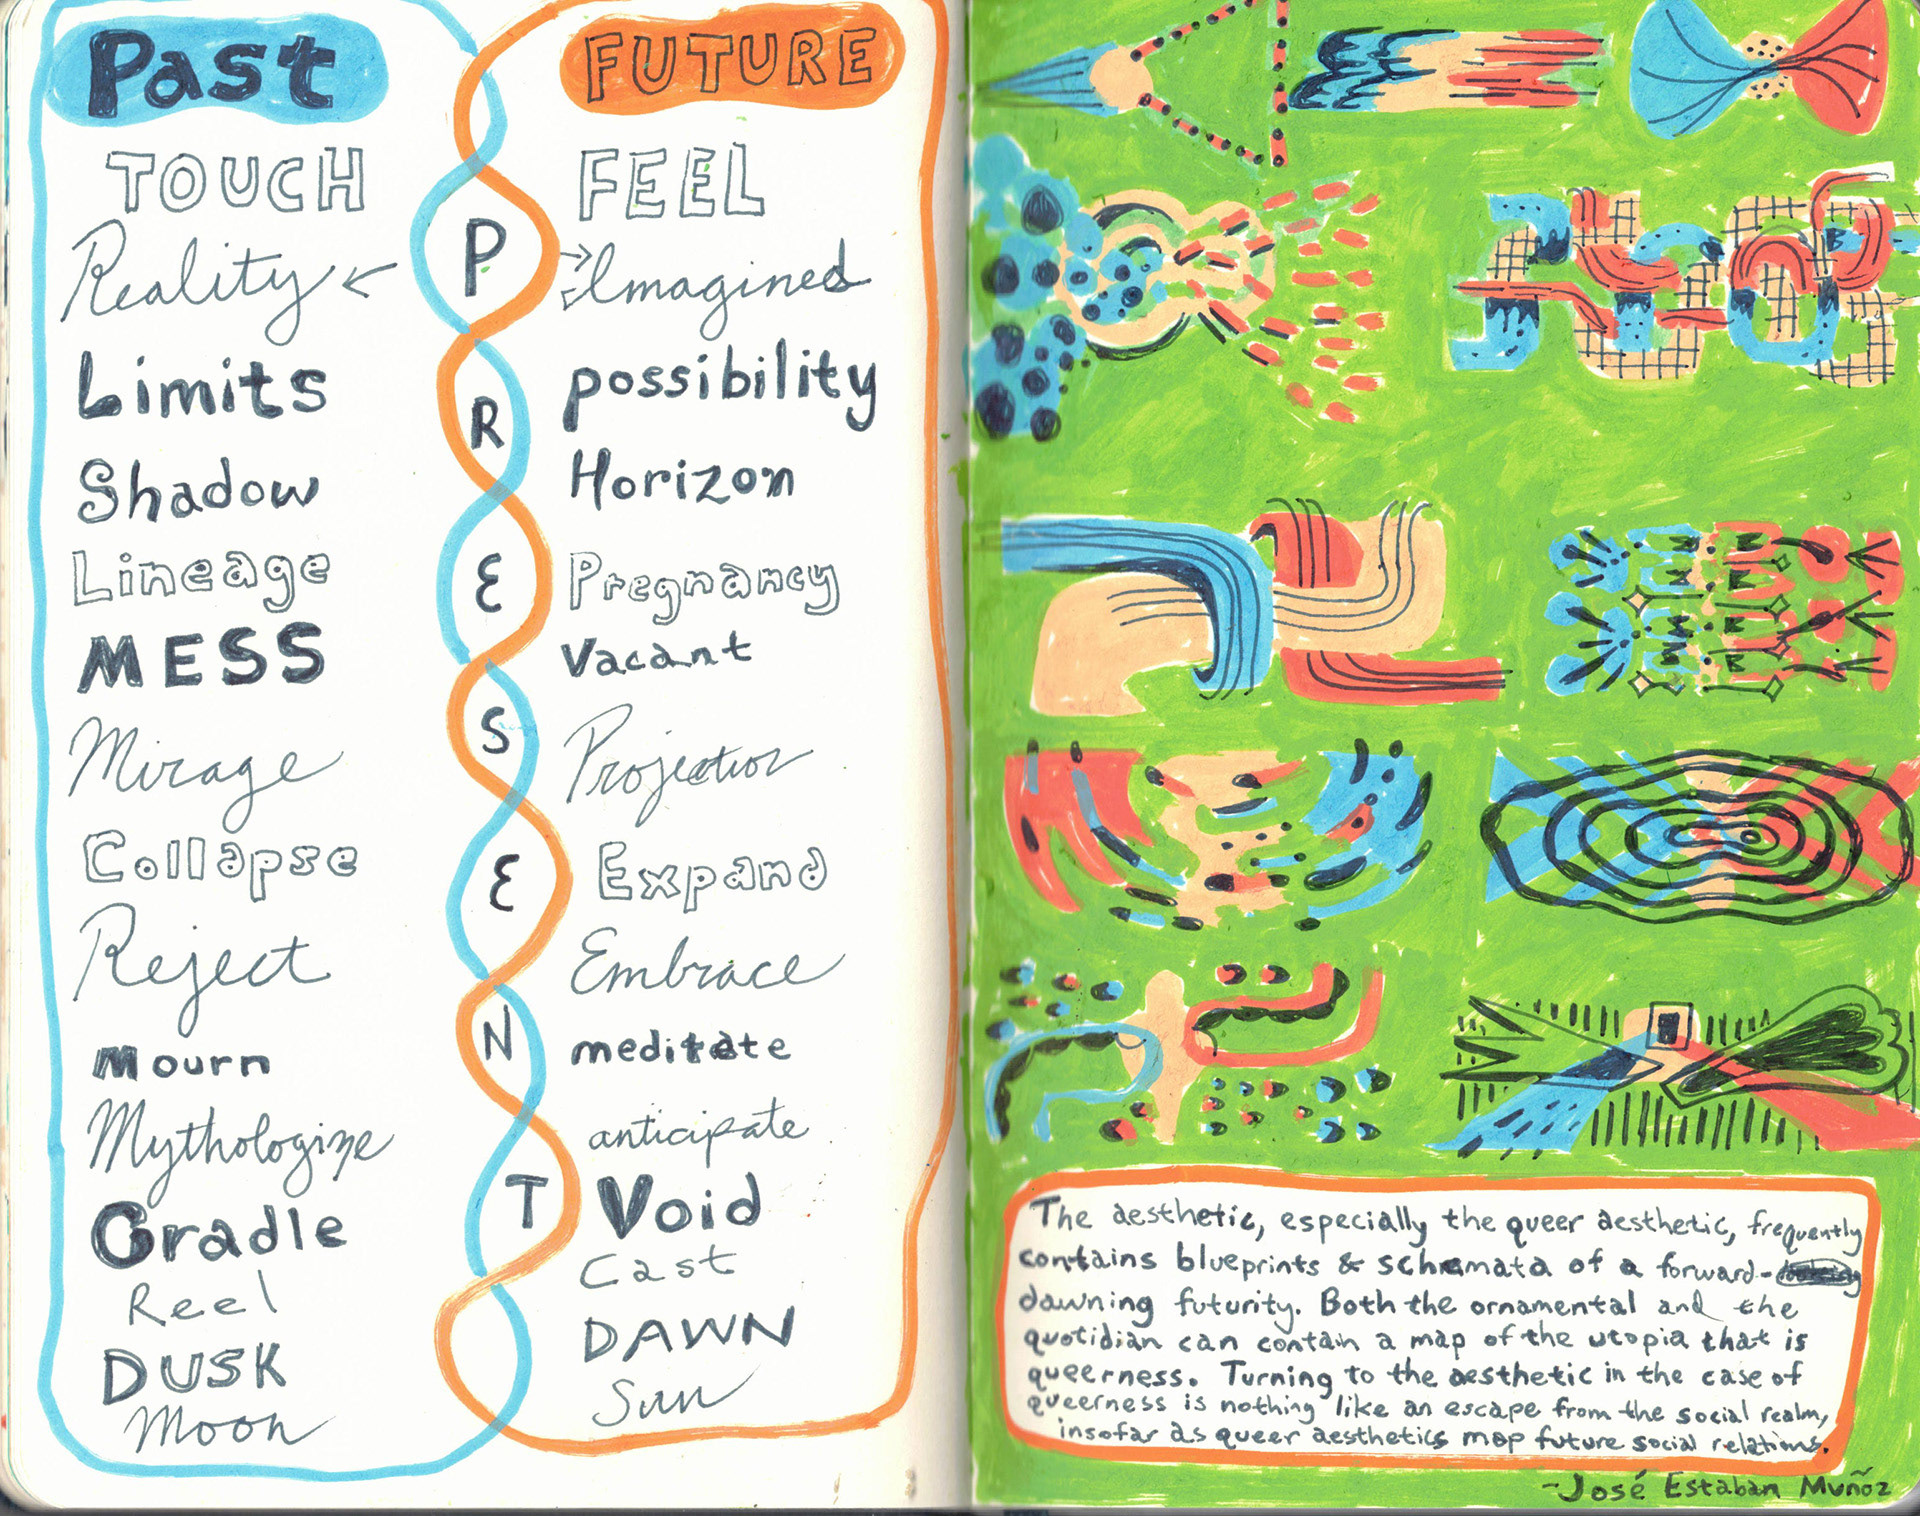 Past
TOUCH
Reality
Limits
Shadow
Lineage
MESS
Mirage
Collapse
Reject
Mourn
Mythologize
Cradle
Reel
DUSK
Moon
PRESENT
FUTURE
FEEL
Imagined
possibility
Horizon
Pregnancy
Vacant
Projection
Expand
Embrace
meditate
anticipate
Void
Cast
DAWN
Sun
The aesthetic, especially the queer aesthetic, frequently
contains blueprints & schemata of a forward-
dawning futurity. Both the ornamental and the
quotidian can contain a map of the utopia that is
queerness. Turning to the aesthetic in the case of
queerness is nothing like an escape from the social realm,
insofar as queer aesthetics map future social relations.
-José Estaban Muñoz